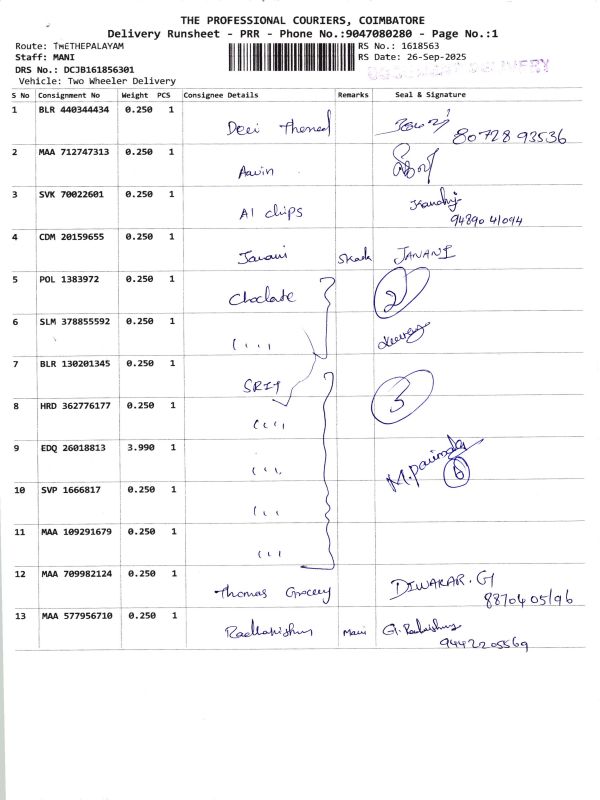 THE PROFESSIONAL COURIERS, COIMBATORE
Delivery Runsheet - PRR - Phone No.:9047080280 - Page No.:1
Route: TMETHEPALAYAM RS No.: 1618563
Staff: MANI RS Date: 26-Sep-2025
DRS No.: DCJB161856301
Vehicle: Two Wheeler Delivery
S No Consignment No Weight PCS Consignee Details Remarks Seal & Signature
1 BLR 440344434 0.250 1
80728 93536
2 MAA 712747313 0.250 1 Aavin
3 SVK 70022601 0.250 1 A1 chips
94890 41094
4 CDM 20159655 0.250 1 Janani JANANI
5 POL 1383972 0.250 1 Choclate 2
6 SLM 378855592 0.250 1 ( , , ,
7 BLR 130201345 0.250 1 SRIT
8 HRD 362776177 0.250 1 ( ( , , 3
9 EDQ 26018813 3.990 1 ( , ,
10 SVP 1666817 0.250 1 ( , ,
11 MAA 109291679 0.250 1 ( , ,
12 MAA 709982124 0.250 1 Thomas Grocery DIWAKAR.G
88704 05196
13 MAA 577956710 0.250 1 Mani
9442205569